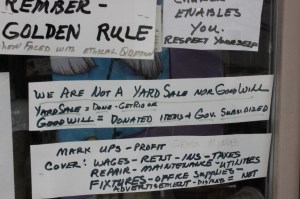 REMBER-
GOLDEN RULE
WHEN FACED WITH ETHICAL
ENABLES
YOU.
RESPECT YOURSELF
WE ARE NOT A YARD SALE NOR GOODWILL
YARD SALE = DONE - GET RID OF
GOODWILL = DONATED ITEMS & GOV. SUBSIDIZED
MARK UPS - PROFIT
COVER: WAGES - RENT - INS - TAXES
REPAIR - MAINTENANCE - UTILITIES
FIXTURES - OFFICE SUPPLIES -
ADVERTISEMENT - DISPLAYS = NET